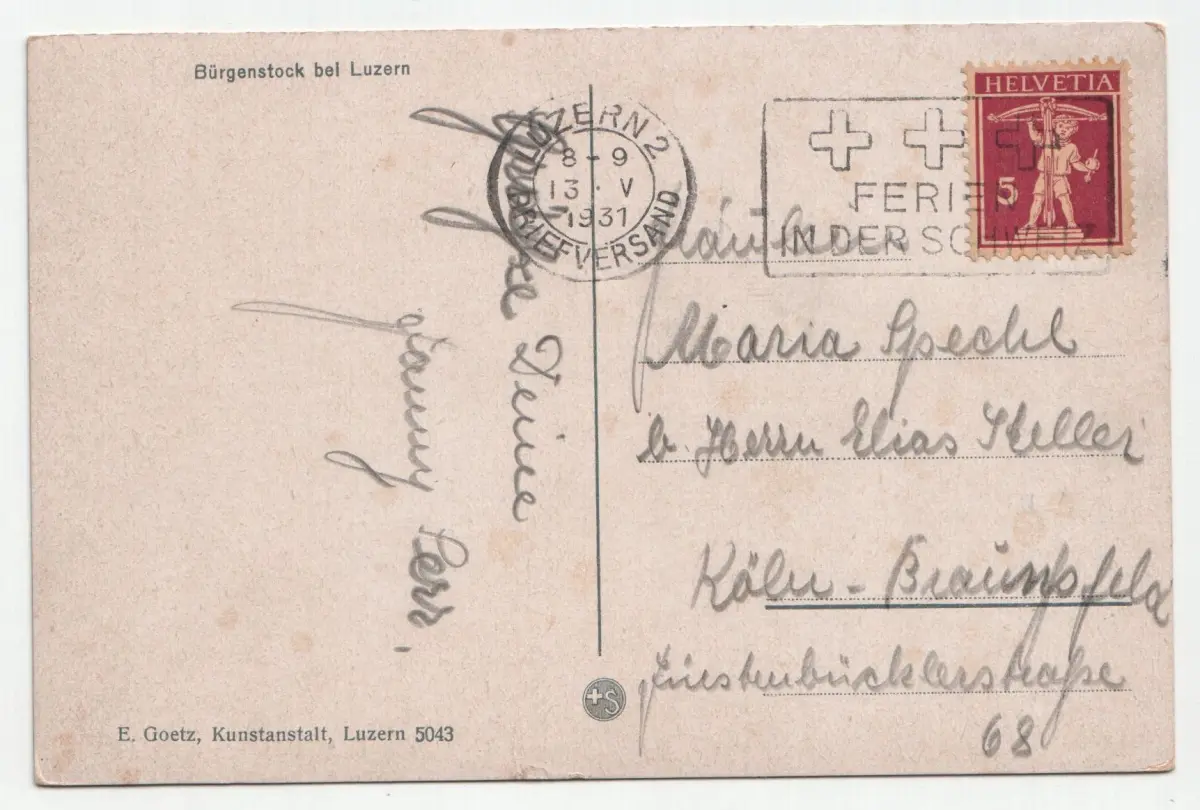 Bürgenstock bei Luzern
LUZERN 2
8-9
13. V
1931
BRIEFVERSAND
FERIEN
IN DER SCHWEIZ
HELVETIA
5
Deine
Fanny
Fräulein
Maria Specht
b. Herrn Elias Keller
Köln - Braunsfeld
68
+S
E. Goetz, Kunstanstalt, Luzern 5043